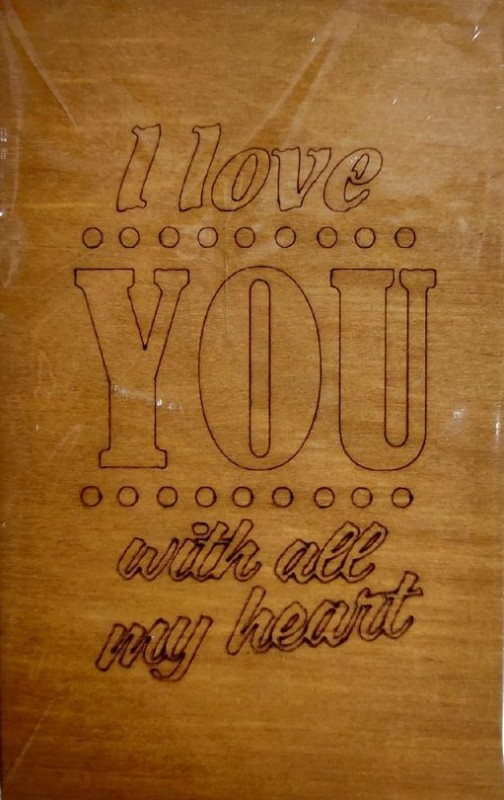 I love
YOU
with all
my heart